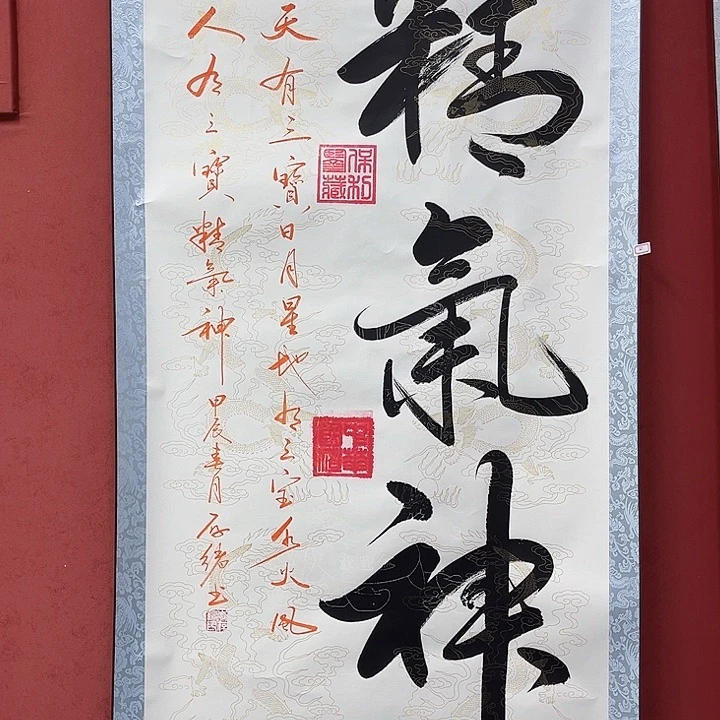 精氣神
天有三寶日月星地有三宝水火風
人有三寶精氣神甲辰春月
保利
藏